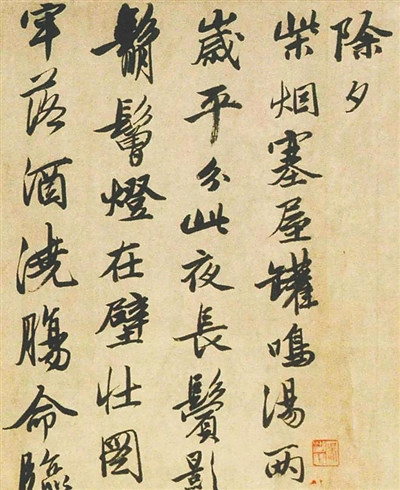 除夕
柴烟塞屋罐鳴湯两
歲平分此夜長鬢影
鬅鬙燈在壁壮圖
牢落酒澆腸命臨